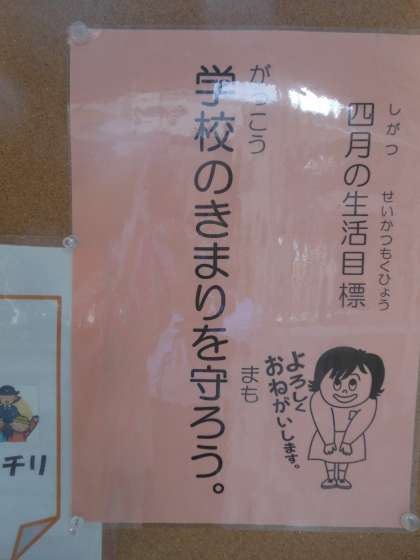 しがつ
せいかつもくひょう
四月の生活目標
がっこう
まも
学校のきまりを守ろう。
よろしく
おねがいします。
チリ